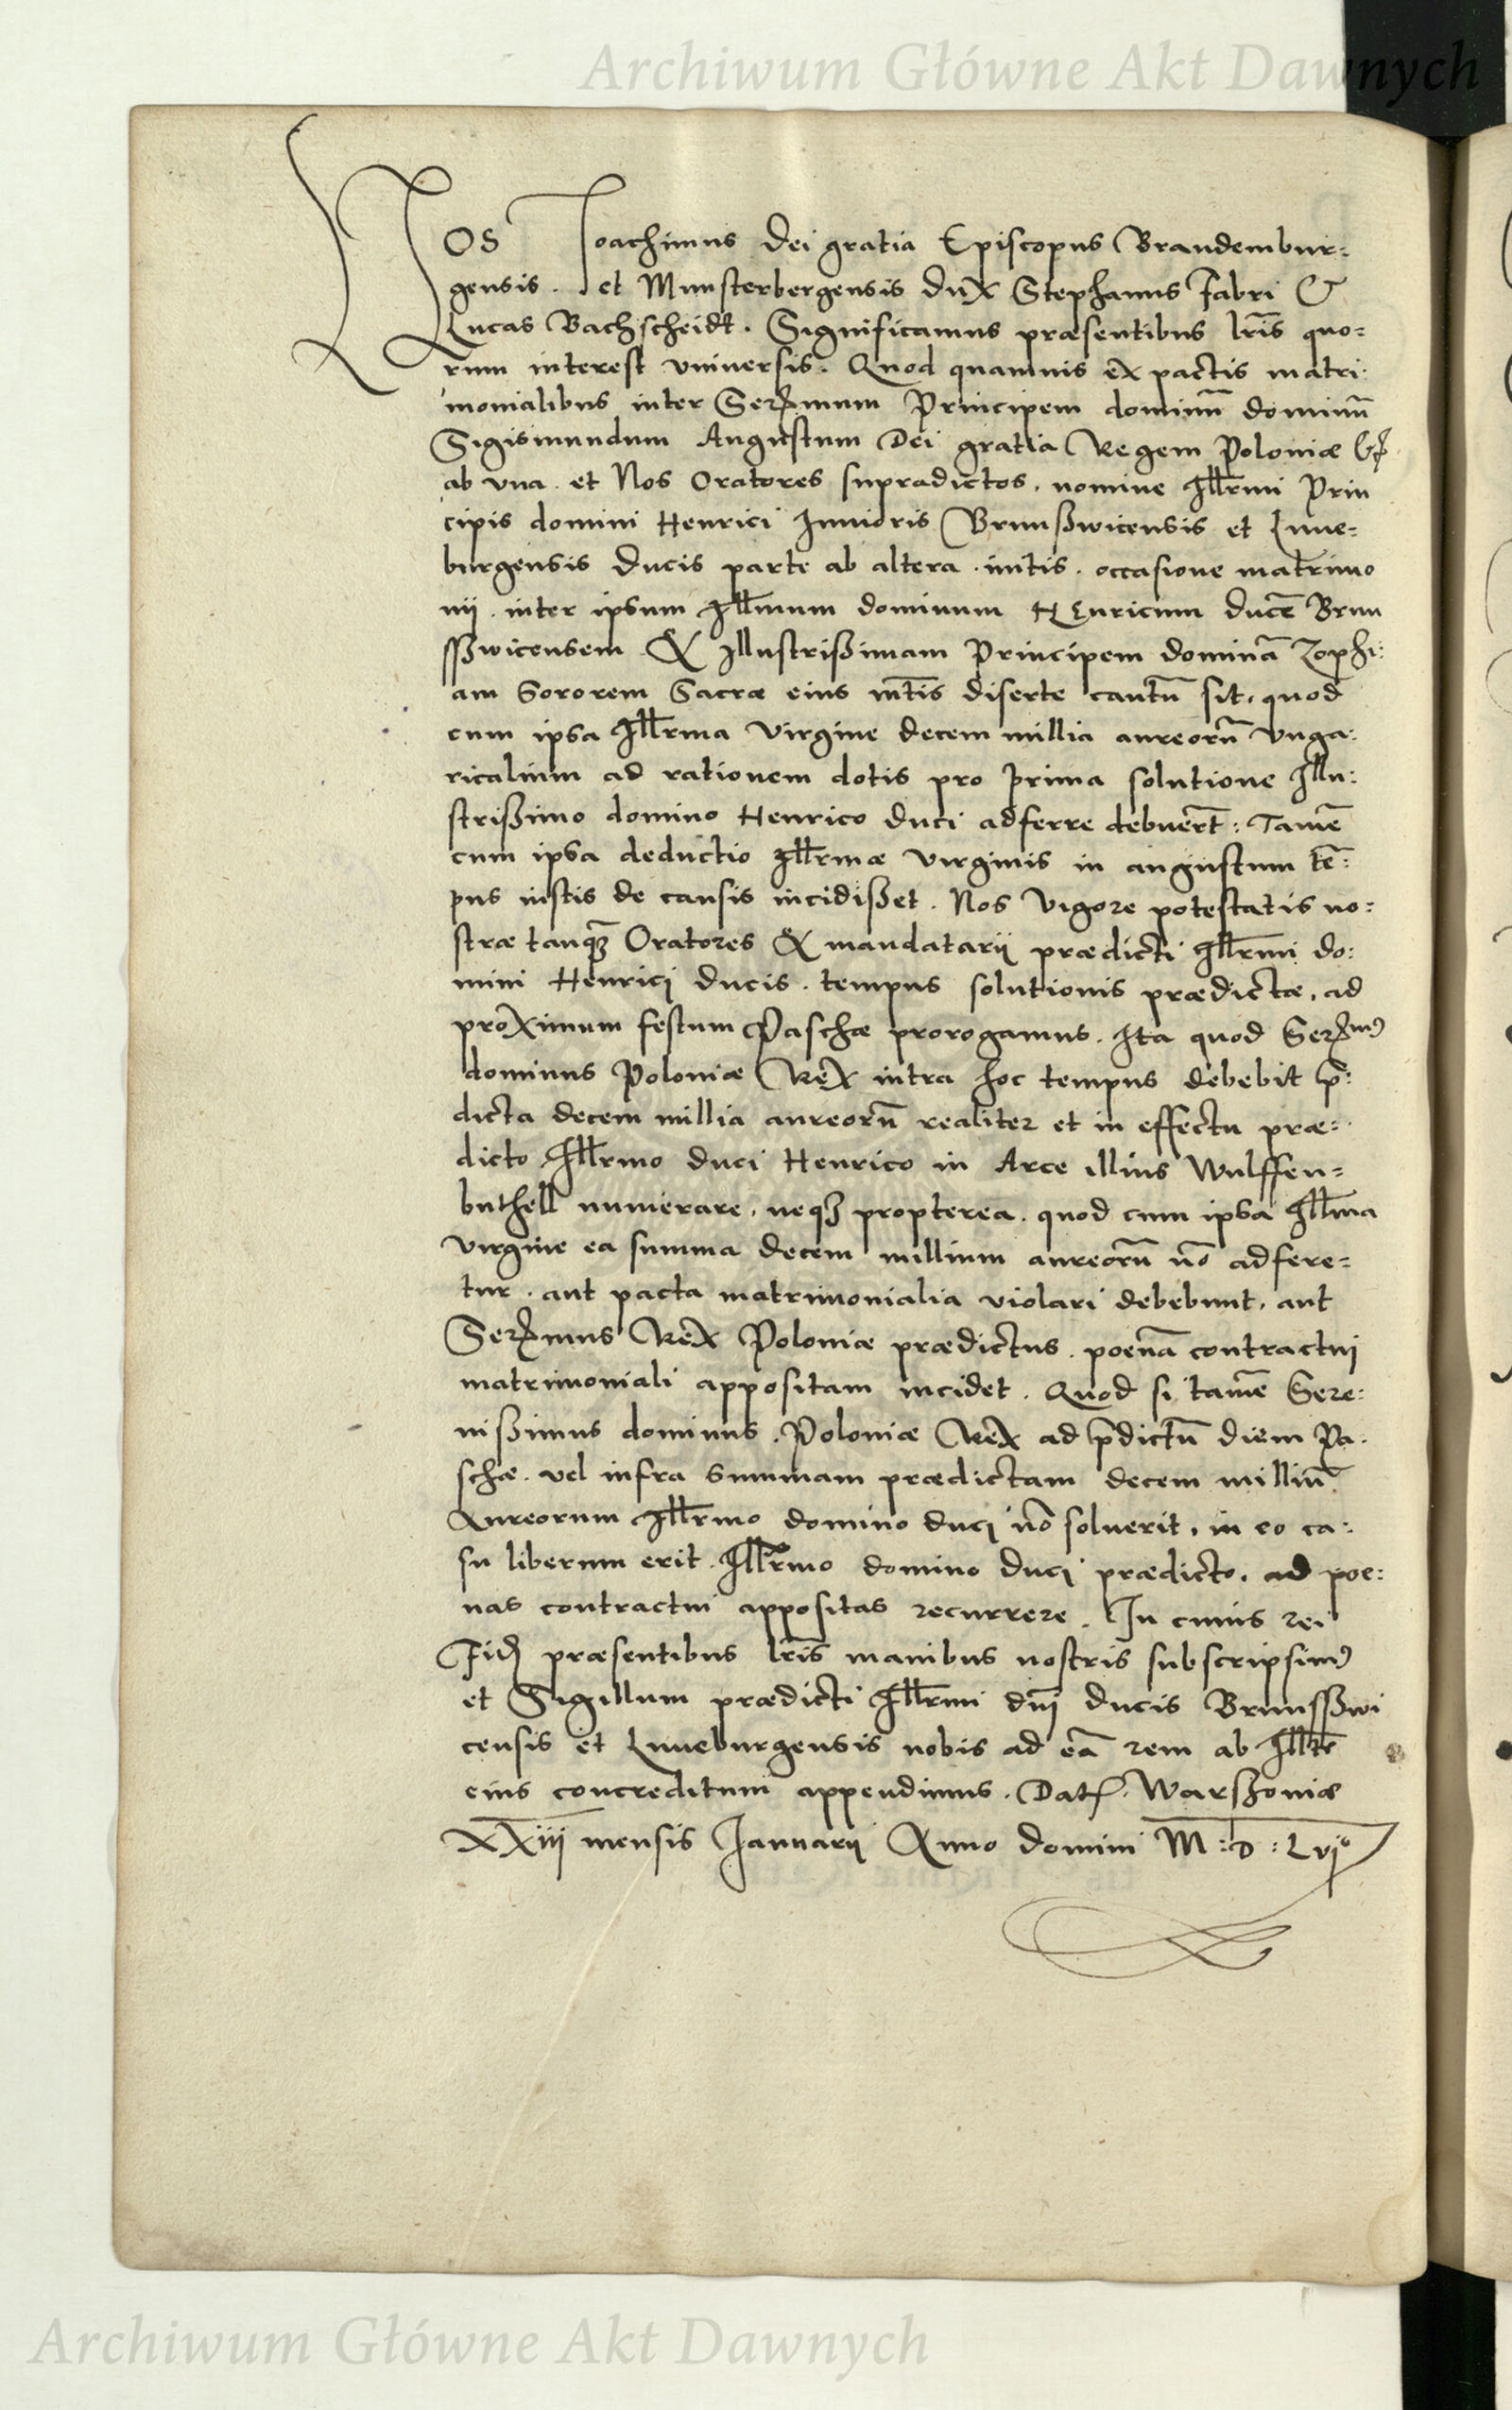 Archiwum Główne Akt Dawnych
Nos Ioachimus Dei gratia Episcopus Brandembur=
gensis. et Munsterbergensis dux Stephanus Fabri &
Lucas Bachscheidt. Significamus præsentibus lr̃is quo=
rum interest vniuersis. Quod quamuis ex pactis matri:
monialibus inter Serꝫmum Principem dominū dominū
Sigismundum Augustum Dei gratia Regem Poloniæ &c
ab vna et Nos Oratores supradictos. nomine Illr̃mi Prin
cipis domini Henrici Iunioris Brunßwicensis et Lune=
burgensis Ducis parte ab altera initis. occasione matrimo
nij. inter ipsum Illm̃um dominum Henricum ducē Brun
sßwicensem & Illustrißimam Principem dominā Zophi:
am Sororem Sacræ eius mt̃is diserte cautū sit. quod
cum ipsa Illr̃ma Virgine decem millia aureorū vnga:
ricalium ad rationem dotis pro prima solutione Illu:
strißimo domino Henrico duci adferre debuer̃t: Tamē
cum ipsa deductio Illr̃mæ virginis in angustum tē:
pus iustis de causis incidißet. Nos vigore potestatis no:
stræ tanqꝫ Oratores & mandatarij prædicti Illr̃mi do:
mini Henrici ducis. tempus solutionis prædictæ, ad
proximum festum Paschæ prorogamus. Ita quod Serꝫmꝰ
dominus Poloniæ Rex intra hoc tempus debebit p̄:
dicta decem millia aureorū realiter et in effectu præ=
dicto Illr̃mo duci Henrico in Arce illius Wulffen=
buthell numerare, neqꝫ propterea. quod cum ipsa Illm̃a
virgine ea summa decem millium aureorū nō adfere=
tur. aut pacta matrimonialia violari debebunt, aut
Serꝫmus Rex Poloniæ prædictus. poenā contractui
matrimoniali appositam incidet. Quod si tamē Sere:
nißimus dominus. Poloniæ Rex ad p̄dictū diem Pa.
schæ. vel infra summam prædictam decem milliū
Aureorum Illr̃mo domino duci nō soluerit, in eo ca:
su liberum erit. Illr̃mo domino Duci prædicto. ad poe:
nas contractui appositas recurrere. In cuius rei
Fidē præsentibus lr̃is manibus nostris subscripsimꝰ
et Sigillum prædicti Illr̃mi dn̄i Ducis Brunsßwi
censis et Luneburgensis nobis ad eā rem ab Illte
eius concreditum appendimus. Dat. Warszouiæ
XXiij mensis Ianuarij Anno domini M:D:Lvjº
Archiwum Główne Akt Dawnych